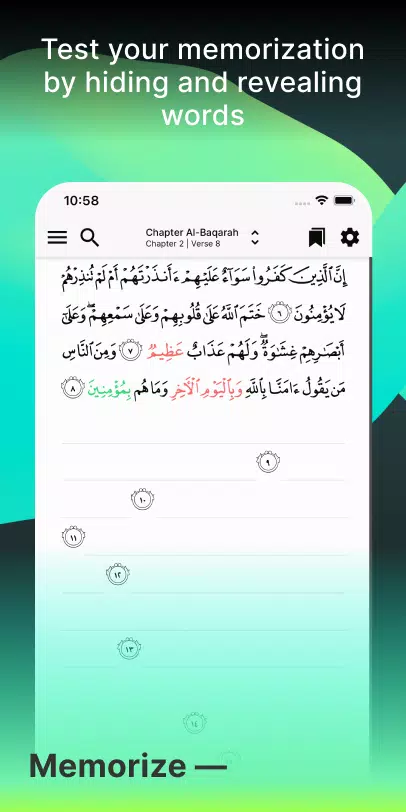 Test your memorization
by hiding and revealing
words
10:58
Chapter Al-Baqarah
Chapter 2 | Verse 8
إِنَّ ٱلَّذِينَ كَفَرُوا۟ سَوَآءٌ عَلَيْهِمْ ءَأَنذَرْتَهُمْ أَمْ لَمْ تُنذِرْهُمْ
لَا يُؤْمِنُونَ ٦ خَتَمَ ٱللَّهُ عَلَىٰ قُلُوبِهِمْ وَعَلَىٰ سَمْعِهِمْ ۖ وَعَلَىٰٓ
أَبْصَـٰرِهِمْ غِشَـٰوَةٌ ۖ وَلَهُمْ عَذَابٌ عَظِيمٌ ٧ وَمِنَ ٱلنَّاسِ
مَن يَقُولُ ءَامَنَّا بِٱللَّهِ وَبِٱلْيَوْمِ ٱلْـَٔاخِرِ وَمَا هُم بِمُؤْمِنِينَ ٨
٩
١٠
١١
١٢
١٣
١٤
Memorize —